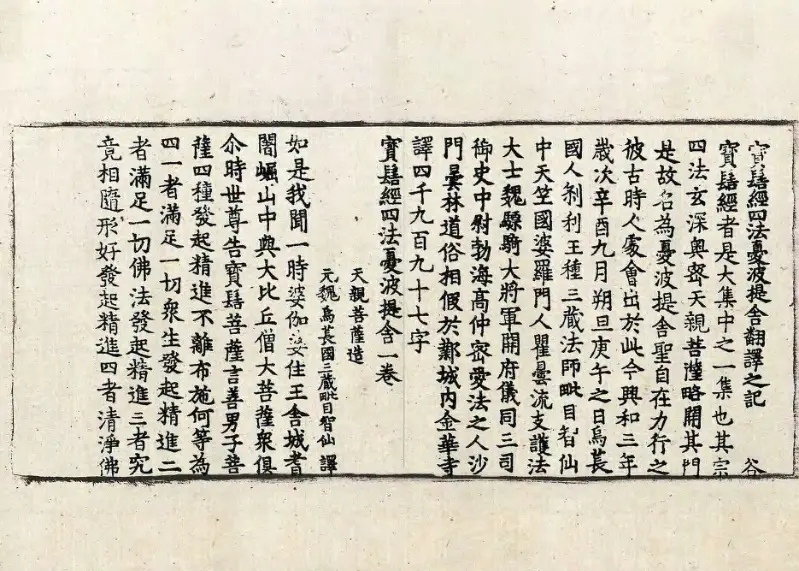 寳髻經四法憂波提舍翻譯之記 谷
寳髻經者是大集中之一集也其宗
四法玄深奥密天親菩薩略開其門
是故名為憂波提舍聖自在力行之
彼古時人處會出於此今興和三年
歲次辛酉九月朔旦庚午之日烏萇
國人刹利王種三蔵法師毗目智仙
中天竺國婆羅門人瞿曇流支護法
大士魏驃騎大將軍開府儀同三司
御史中尉勃海髙仲密愛法之人沙
門曇林道俗相假於鄴城内金華寺
譯四千九百九十七字
寳髻經四法憂波提舍一卷
天親菩薩造
元魏烏萇國三蔵毗目智仙譯
如是我聞一時婆伽婆住王舍城耆
闍崛山中與大比丘僧大菩薩衆俱
尒時世尊告寳髻菩薩言善男子菩
薩四種發起精進不離布施何等為
四一者滿足一切衆生發起精進二
者滿足一切佛法發起精進三者究
竟相隨形好發起精進四者清淨佛